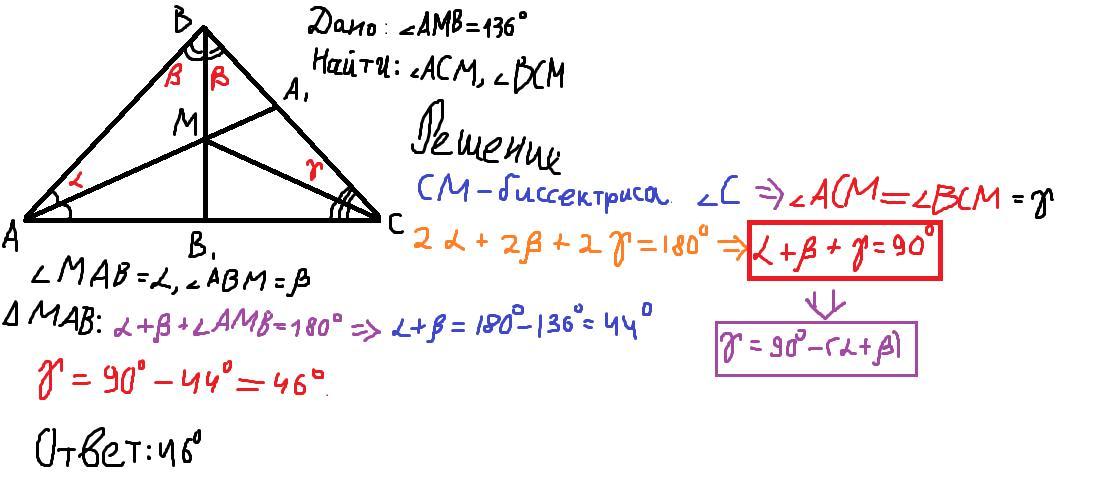 B
β β
A₁
M
α
γ
A
B₁
C
Дано: ∠AMB=136°
Найти: ∠ACM, ∠BCM
Решение
CM-биссектриса ∠C ⇒ ∠ACM=∠BCM = γ
2α + 2β + 2γ = 180° ⇒ α + β + γ = 90°
⇓
γ = 90° - (α+β)
∠MAB=α, ∠ABM=β
Δ MAB: α+β+∠AMB=180° ⇒ α+β = 180°-136°= 44°
γ = 90° - 44° = 46°.
Ответ: 46°